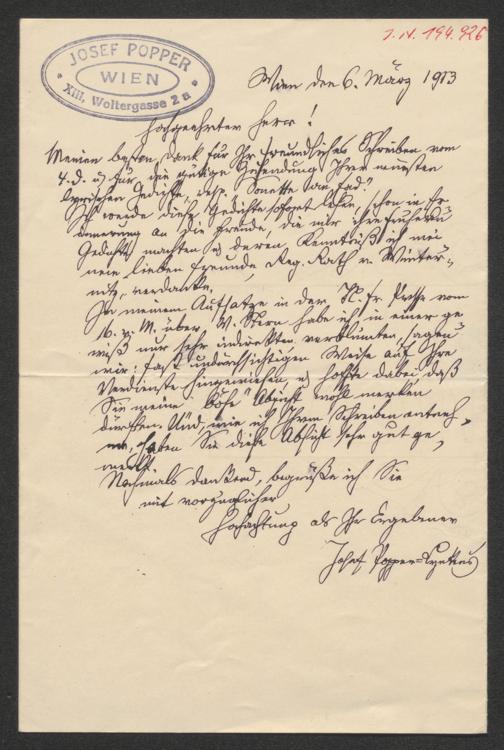 J.N. 194.926
JOSEF POPPER
WIEN
XIII, Woltergasse 2a
Wien den 6. März 1913
Hochgeehrter Herr!
Meinen besten Dank für Ihr freundliches Schreiben vom
4. d. u. für die gütige Zusendung Ihrer neuesten
lyrischen Gedichte, resp. Sonette an
Ich werde diese Gedichte sofort lesen, schon in Er-
innerung an die Freude, die mir Ihre früheren
Gedichte machten u. deren Kenntniß ich mei-
nem lieben Freunde, Reg. Rath v. Winter-
nitz, verdanke.
In meinem Aufsatze in der N. Fr. Presse vom
16. v. M. über W. Stern habe ich in einer ge-
wiß nur sehr indirekten, verblümten, sagen
wir: fast undurchsichtigen Weise auf Ihre
Verdienste hingewiesen, u. hoffte dabei, daß
Sie meine "böse" Absicht wohl merken
dürften. Und, wie ich Ihrem Schreiben entneh-
me, haben Sie diese Absicht sehr gut ge-
merkt.
Nochmals dankend, begrüße ich Sie
mit vorzüglicher
Hochachtung als Ihr Ergebener
Josef Popper=Lynkeus